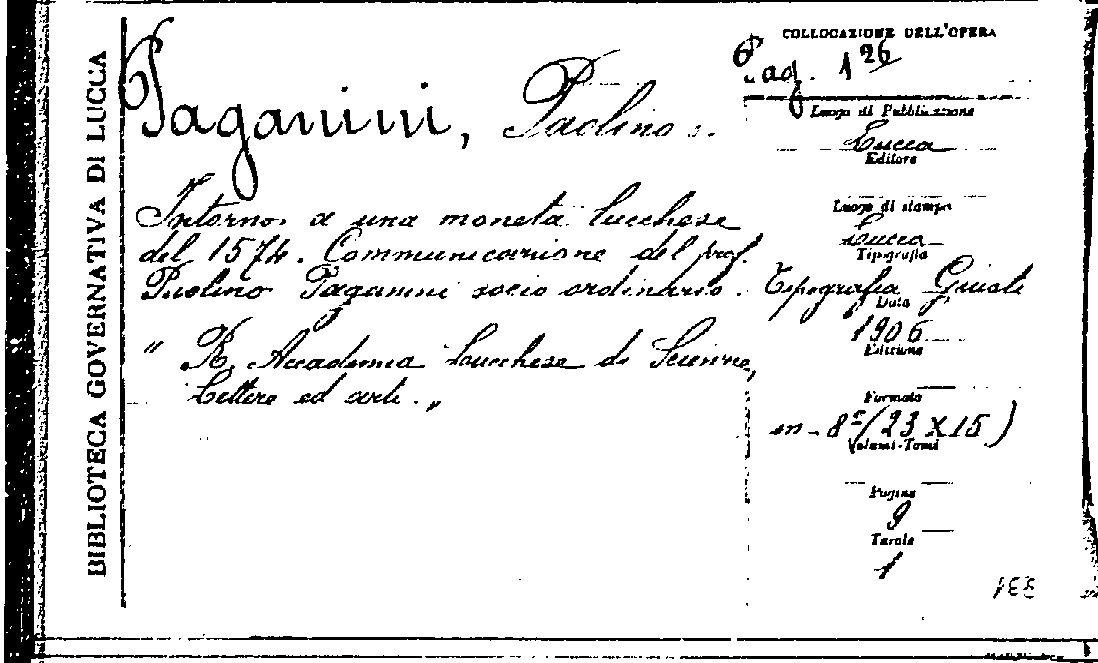 BIBLIOTECA GOVERNATIVA DI LUCCA
Paganini, Paolino.
Intorno a una moneta lucchese
del 1574. Communicazione del prof.
Paolino Paganini socio ordinario.
" R. Accademia Lucchese di Scienze,
Lettere ed arti. "
COLLOCAZIONE DELL'OPERA
Pag. 126
Luogo di Pubblicazione
Lucca
Editore
Luogo di stampa
Lucca
Tipografia
Tipografia Giusti
Data
1906
Edizione
Formato
in-8° (23 x 15)
Volumi-Tomi
Pagine
9
Tavole
1